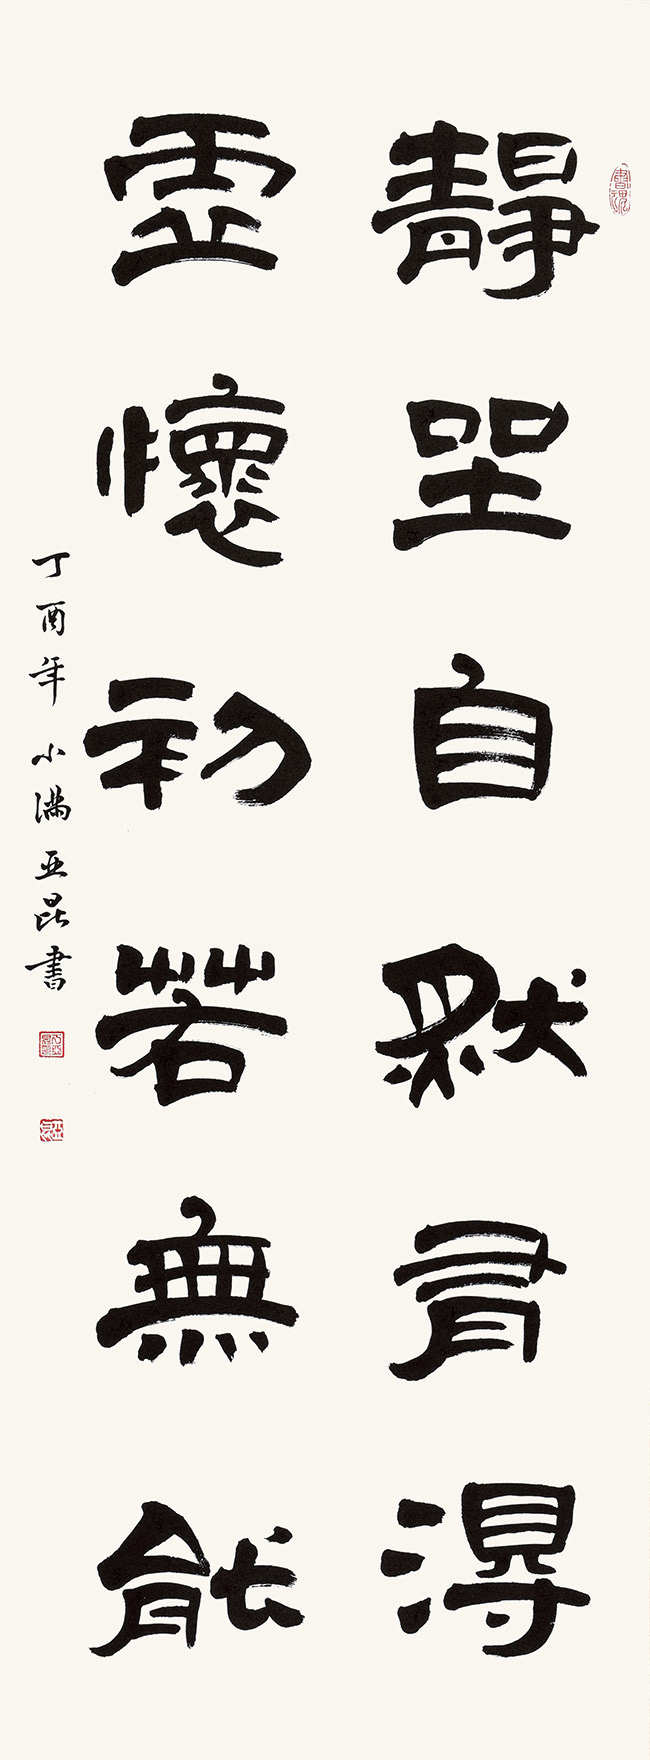 靜坐自然有得
虛懷初若無能
丁酉年小滿亞昆書